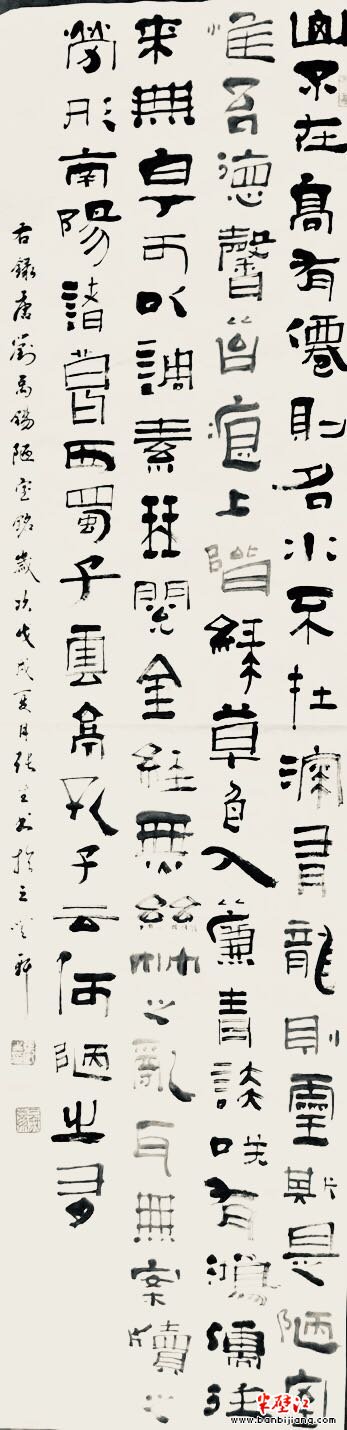 山不在高有僊則名水不在深有龍則靈斯是陋室
惟吾德馨苔痕上階綠草色入簾青談咲有鴻儒往
來無白丁可以調素琴閱金經無絲竹之亂耳無案牘之
勞形南陽諸葛西蜀子雲亭孔子云何陋之有
右錄唐劉禹錫陋室銘歲次戊戌夏月張書於立軒
半壁江
www.banbijiang.com